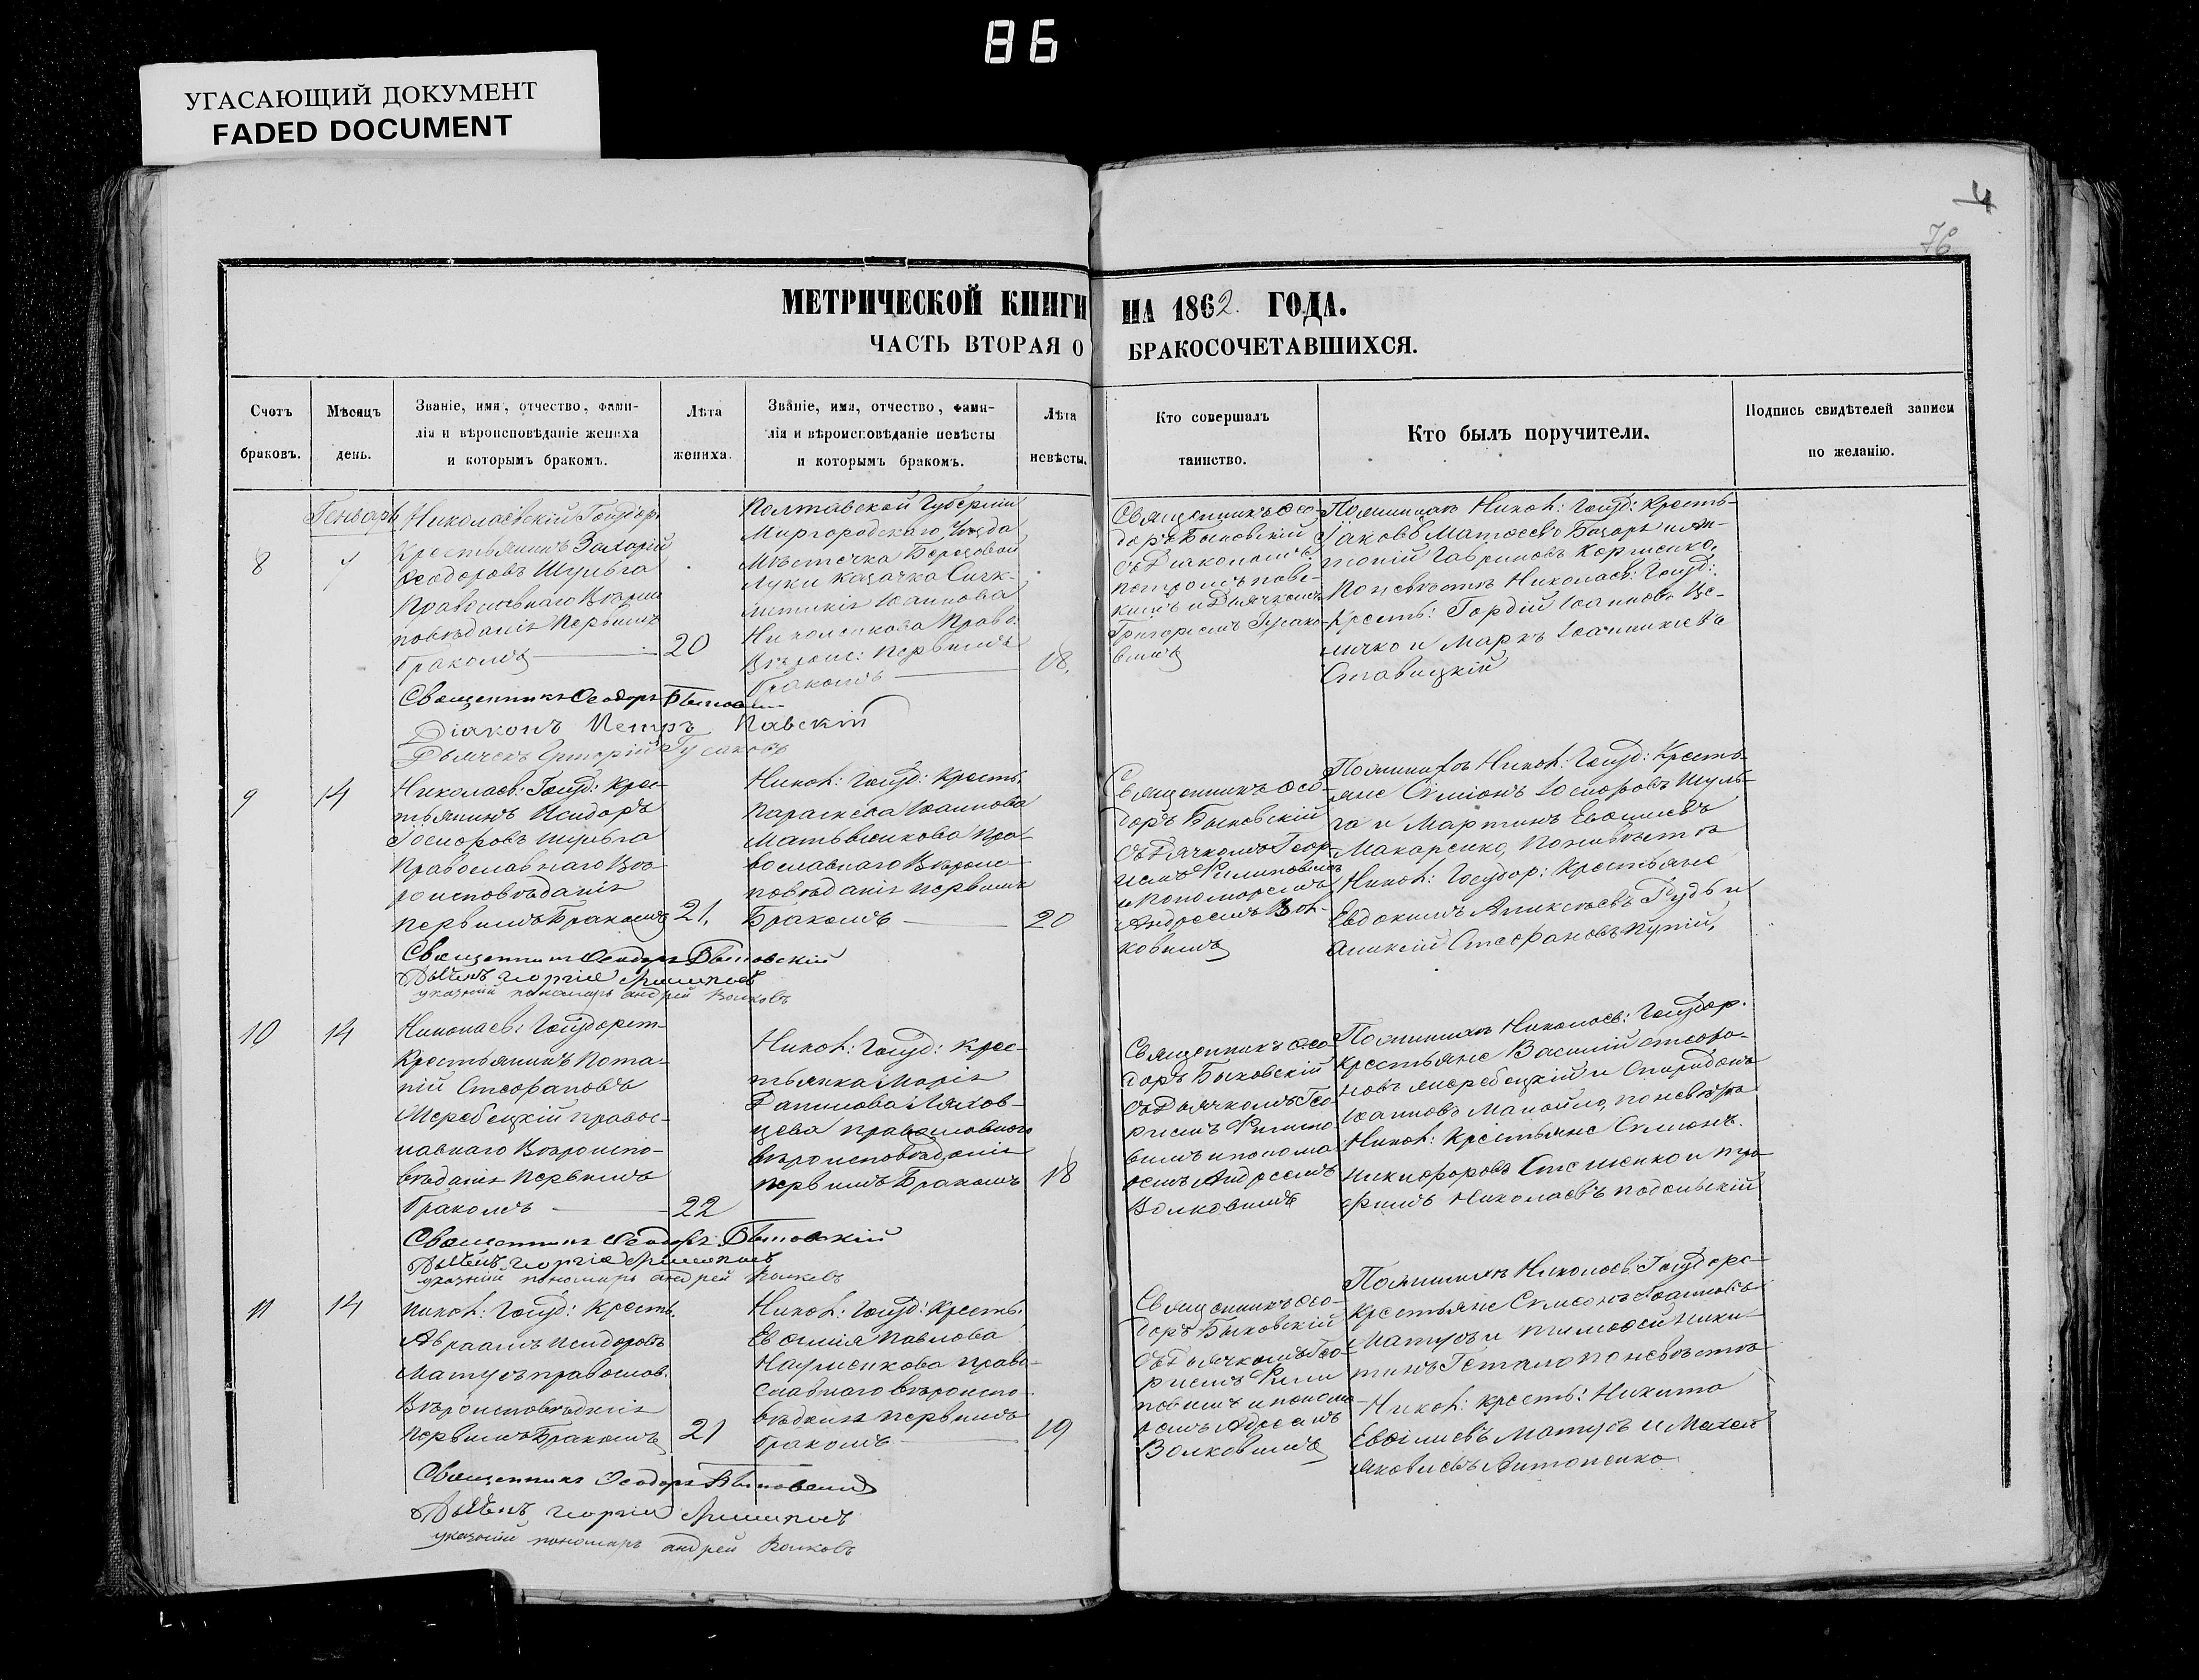 86
УГАСАЮЩИЙ ДОКУМЕНТ
FADED DOCUMENT
4
76
МЕТРИЧЕСКОЙ КНИГИ НА 1862 ГОДА.
ЧАСТЬ ВТОРАЯ О БРАКОСОЧЕТАВШИХСЯ.
Счетъ браковъ.
Мѣсяцъ день.
Званіе, имя, отчество, фами-
лія и вѣроисповѣданіе жениха
и которымъ бракомъ.
Лѣта жениха.
Званіе, имя, отчество, фами-
лія и вѣроисповѣданіе невѣсты
и которымъ бракомъ.
Лѣта невѣсты.
Кто совершалъ
таинство.
Кто былъ поручители.
Подпись свидѣтелей записи
по желанію.
Генварь
8
7
Николаевскій Государ:
Крестьянинъ Захарій
Ѳеодоровъ Шульга
Православнаго Вѣроис
повѣданія Первымъ
бракомъ
20
Полтавской Губерніи
Миргородскаго Уѣзда
Мѣстечка Березовой
Луки казачка
Іоаннова
Николенкова Право:
Вѣроис: первымъ
бракомъ
18.
Священникъ Ѳео-
доръ Быковскій
съ Діакономъ
Петромъ Павс-
кимъ и Дьячкомъ
Григоріемъ Гусако-
вымъ
По женихѣ Никол: Госуд: Кресть-
Іаковъ Матѳеевъ
Гавриловъ
По невѣстѣ Николаев: Госуд:
Кресть: Гордій Іоанновъ Ве-
личко и Маркъ Іоанникіевъ
Ставицкій
Священникъ Ѳеодоръ Быковскій
Діаконъ Петръ Павскій
Дьячекъ Григорій Гусаковъ
9
14
Николаев: Госуд: Крес-
тьянинъ Исидоръ
Шульга
Православнаго Вѣ-
роисповѣданія
первымъ Бракомъ
21.
Никол: Госуд: Кресть.
Параскева Іоаннова
Пра-
вославнаго Вѣроис-
повѣданія первымъ
Бракомъ
20
Священникъ Ѳео-
доръ Быковскій
съ Дьячкомъ Геор-
и Пономаремъ
Андреемъ Вол-
ковымъ
По женихѣ Никол: Госуд: Кресть-
яне Симіонъ Шуль-
га и Мартинъ
Макаренко, По невѣстѣ
Никол: Государ: Крестьяне
Евдокимъ
Алексій Стефановъ
Священникъ Ѳеодоръ Быковскій
указный пономарь андрей Волковъ
10
14
Николаев: Государст-
Крестьянинъ Пота-
пій Стефановъ
Жеребецкій правос-
лавнаго Вѣроиспо-
вѣданія Первымъ
бракомъ
22
Никол: Госуд: Крес-
тьянка Марія
Данилова Ляхов-
цева православнаго
вѣроисповѣданія
первымъ Бракомъ
18
Священникъ Ѳео-
доръ Быковскій
съ Дьячкомъ Гео-
вымъ и понома-
ремъ Андреемъ
Волковымъ
По женихѣ Николаев: Государ.
крестьяне Василій Стефа-
новъ Жеребецкій и Спиридонъ
Іоанновъ Манойло, по невѣстѣ
Никол: Крестьяне Симіонъ.
Никифоровъ
Николаевъ Подольскій
Священникъ Ѳеодоръ Быковскій
указный пономарь андрей Волковъ
11
14
Никол: Госуд: Кресть.
Авраамъ Исидоровъ
Матусъ православ.
Вѣроисповѣданія
первымъ Бракомъ
21
Никол: Госуд: Кресть:
Евфимія Павлова
Науменкова право-
славнаго вѣроиспо-
вѣданія первымъ
бракомъ
19
Священникъ Ѳео-
доръ Быковскій
съ Дьячкомъ Гео-
Волковымъ
По женихѣ Николаев: Государс-
Крестьяне Симеонъ Іоанновъ
Матусъ и Тимоѳей Ники-
тинъ по невѣстѣ
Никол: Кресть: Никита
Евѳиміевъ Матусъ и
Яковлевъ Антоненко
Священникъ Ѳеодоръ Быковскій
указный пономарь андрей Волковъ